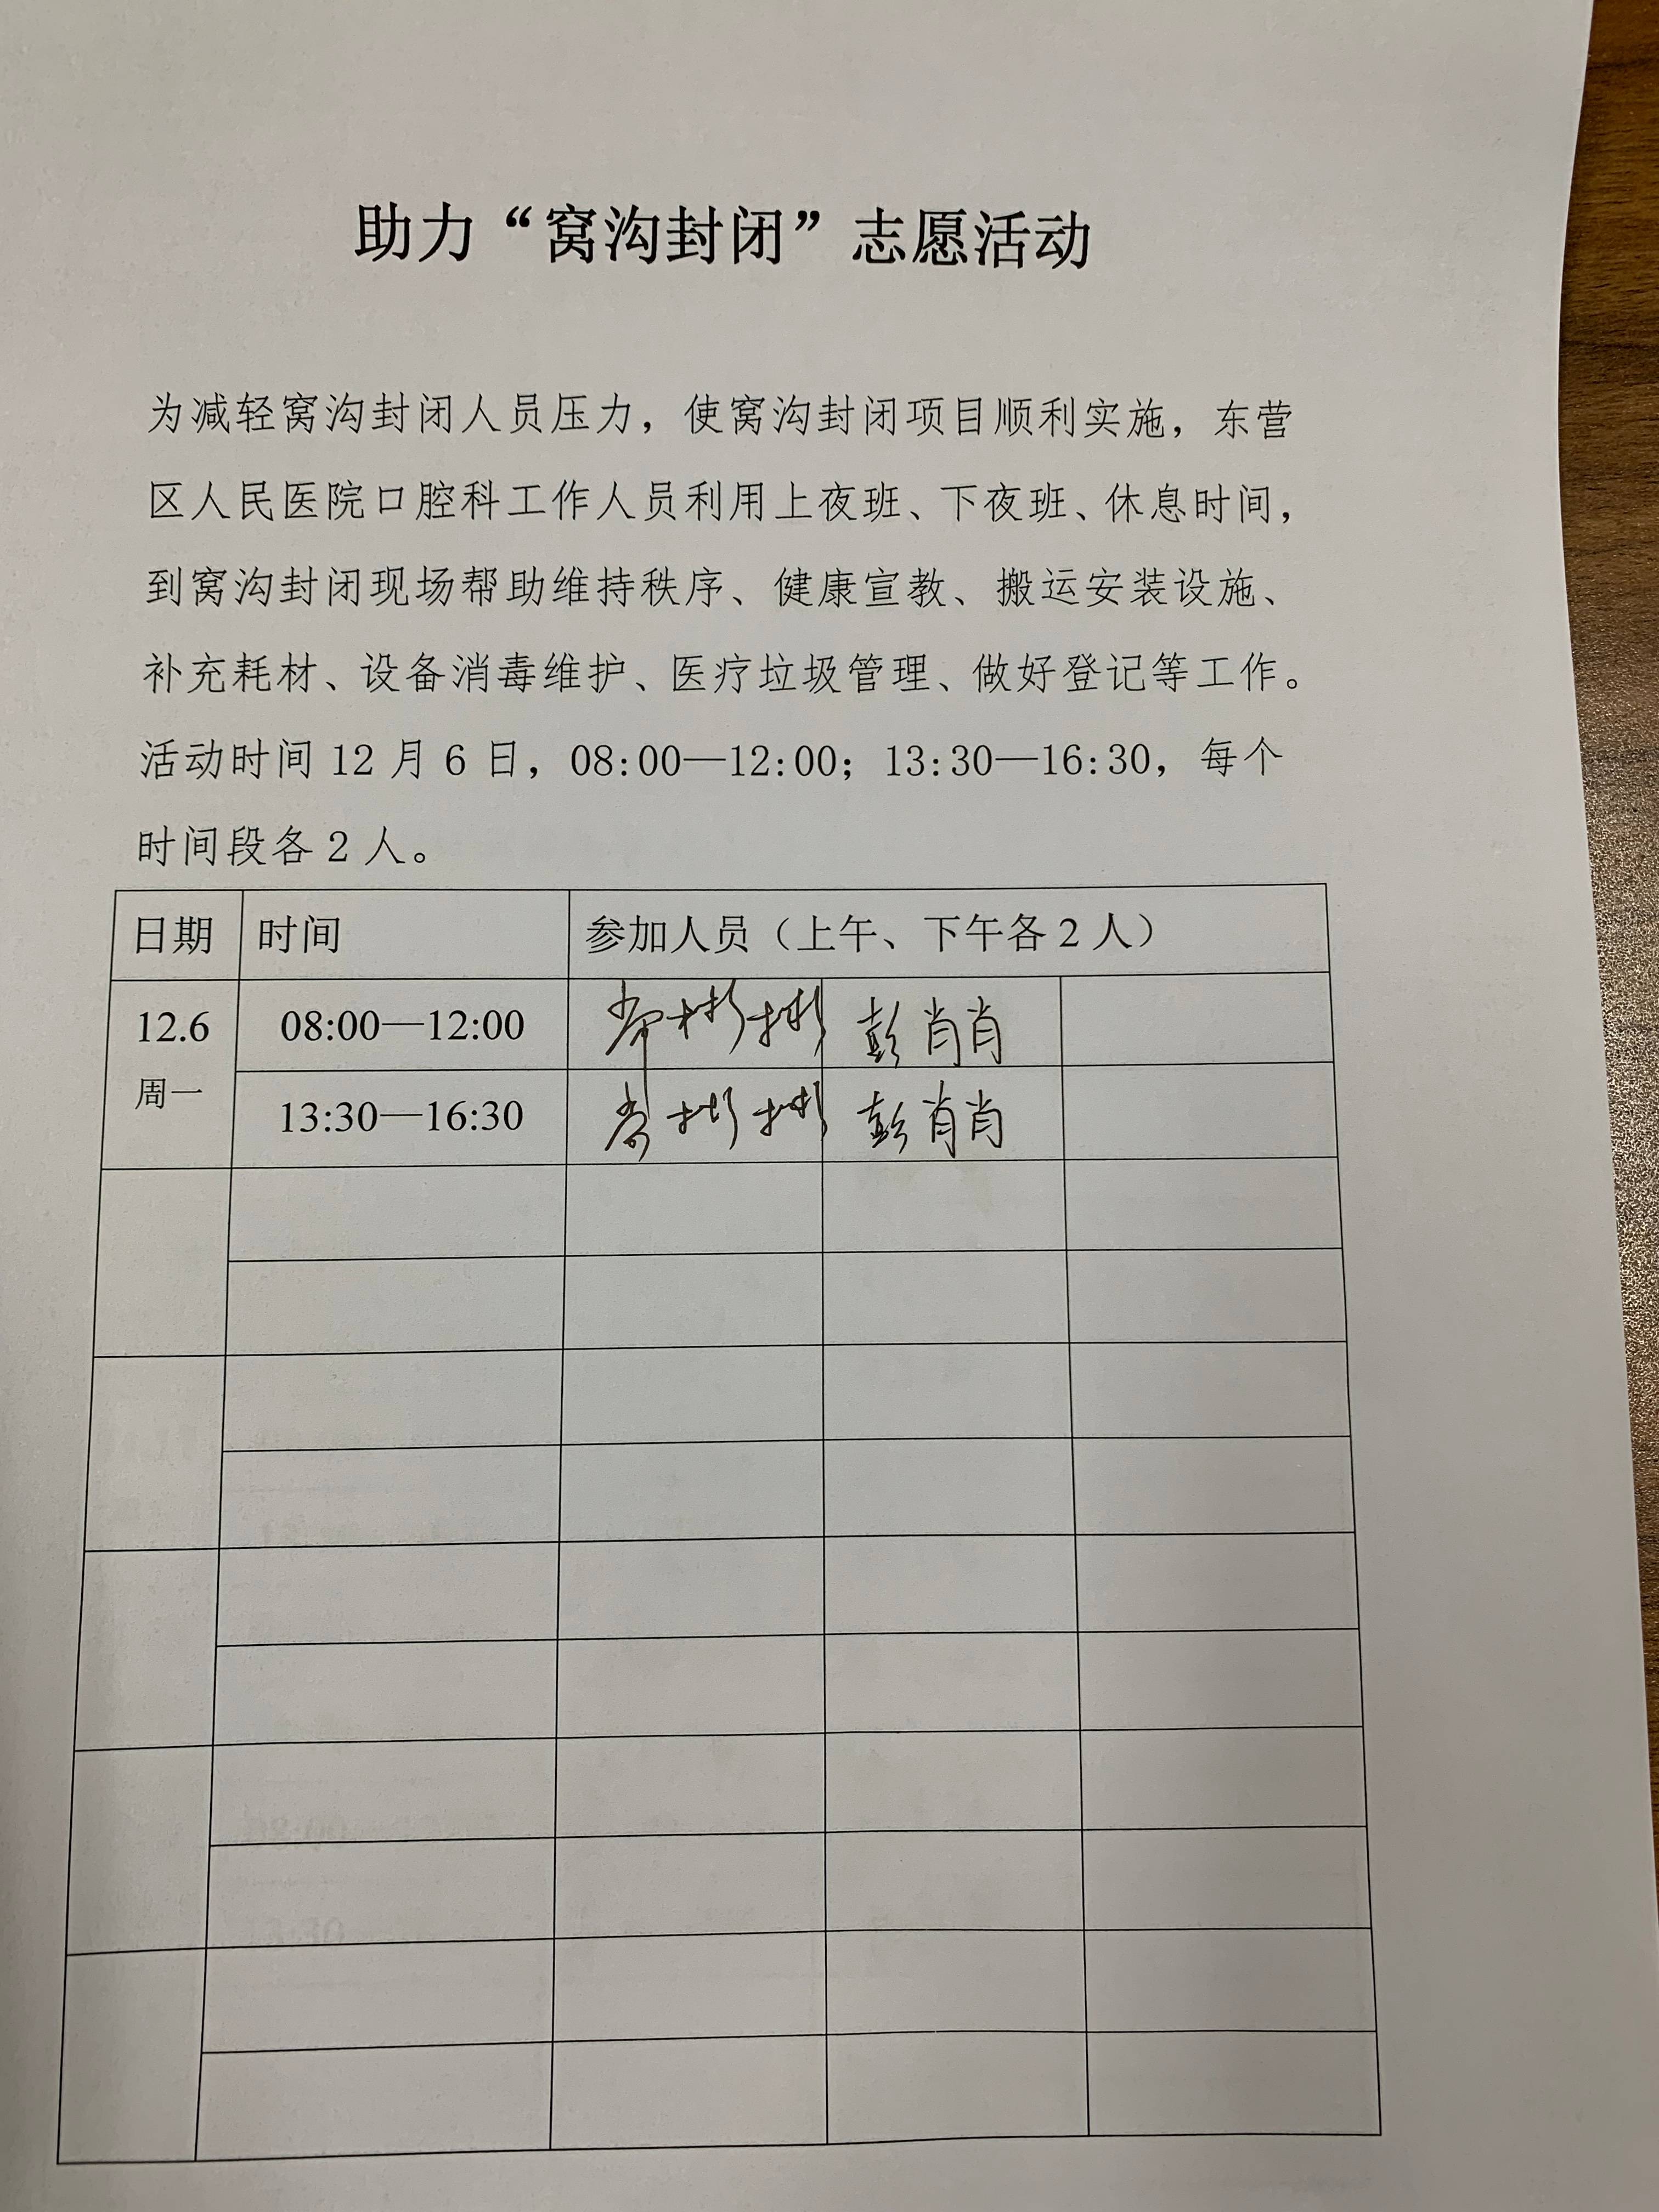 助力“窝沟封闭”志愿活动
为减轻窝沟封闭人员压力，使窝沟封闭项目顺利实施，东营
区人民医院口腔科工作人员利用上夜班、下夜班、休息时间，
到窝沟封闭现场帮助维持秩序、健康宣教、搬运安装设施、
补充耗材、设备消毒维护、医疗垃圾管理、做好登记等工作。
活动时间 12 月 6 日，08:00—12:00；13:30—16:30，每个
时间段各 2 人。
日期 时间 参加人员（上午、下午各 2 人）
12.6 08:00—12:00 常彬彬 彭肖肖
周一 13:30—16:30 常彬彬 彭肖肖